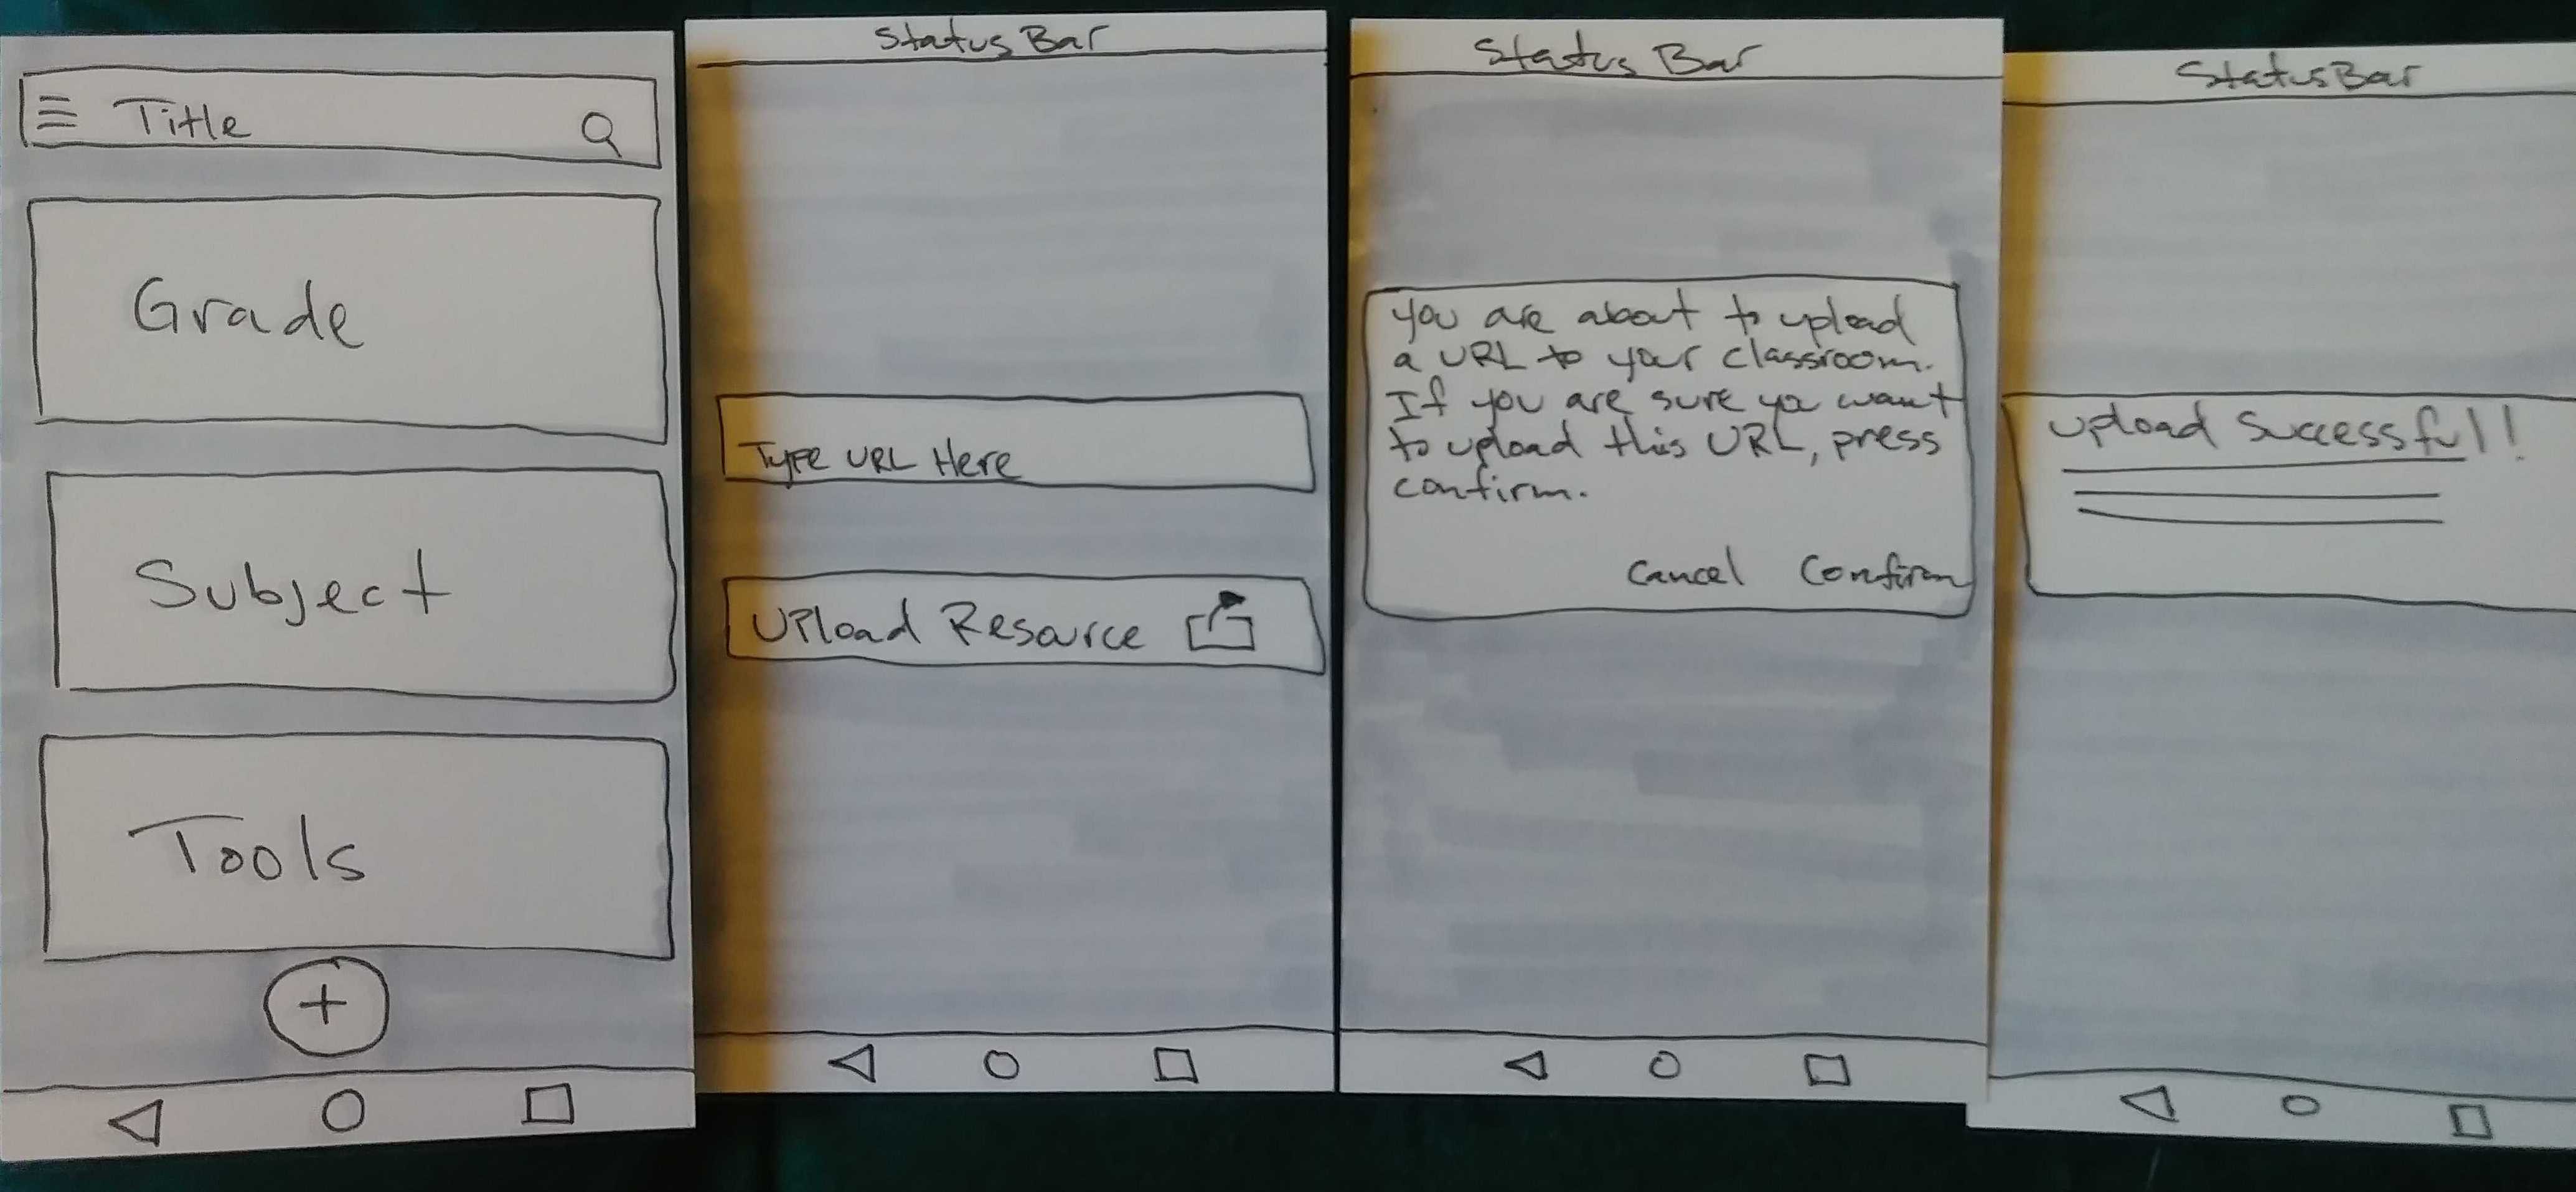 Title
Grade
Subject
Tools
Status Bar
Type URL Here
Upload Resource
Status Bar
You are about to upload
a URL to your classroom.
If you are sure you want
to upload this URL, press
confirm.
Cancel Confirm
Status Bar
Upload Successful!